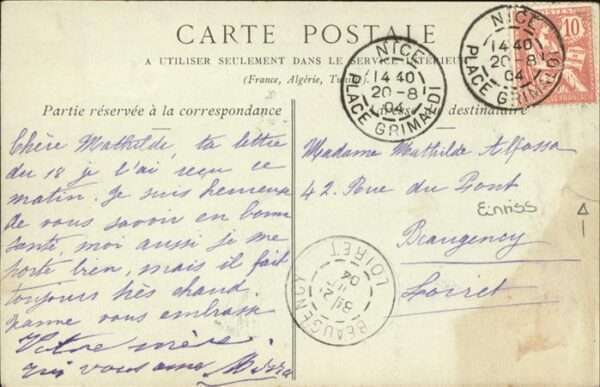 CARTE POSTALE
A UTILISER SEULEMENT DANS LE SERVICE INTÉRIEUR
(France, Algérie, Tunisie)
Partie réservée à la correspondance
destinataire
Chère Mathilde, ta lettre
du 18 je l'ai reçu ce
matin. Je suis heureuse
de vous savoir en bonne
santé, moi aussi je me
porte bien, mais il fait
toujours très chaud.
vous embrasse
Votre mère
qui vous aime
Madame Mathilde Alfassa
42. Rue du Pont
Beaugency
Loiret
NICE
14 40
20 - 8
04
PLACE GRIMALDI
NICE
14 40
20 - 8
04
PLACE GRIMALDI
10
POSTES
BEAUGENCY
LOIRET
04